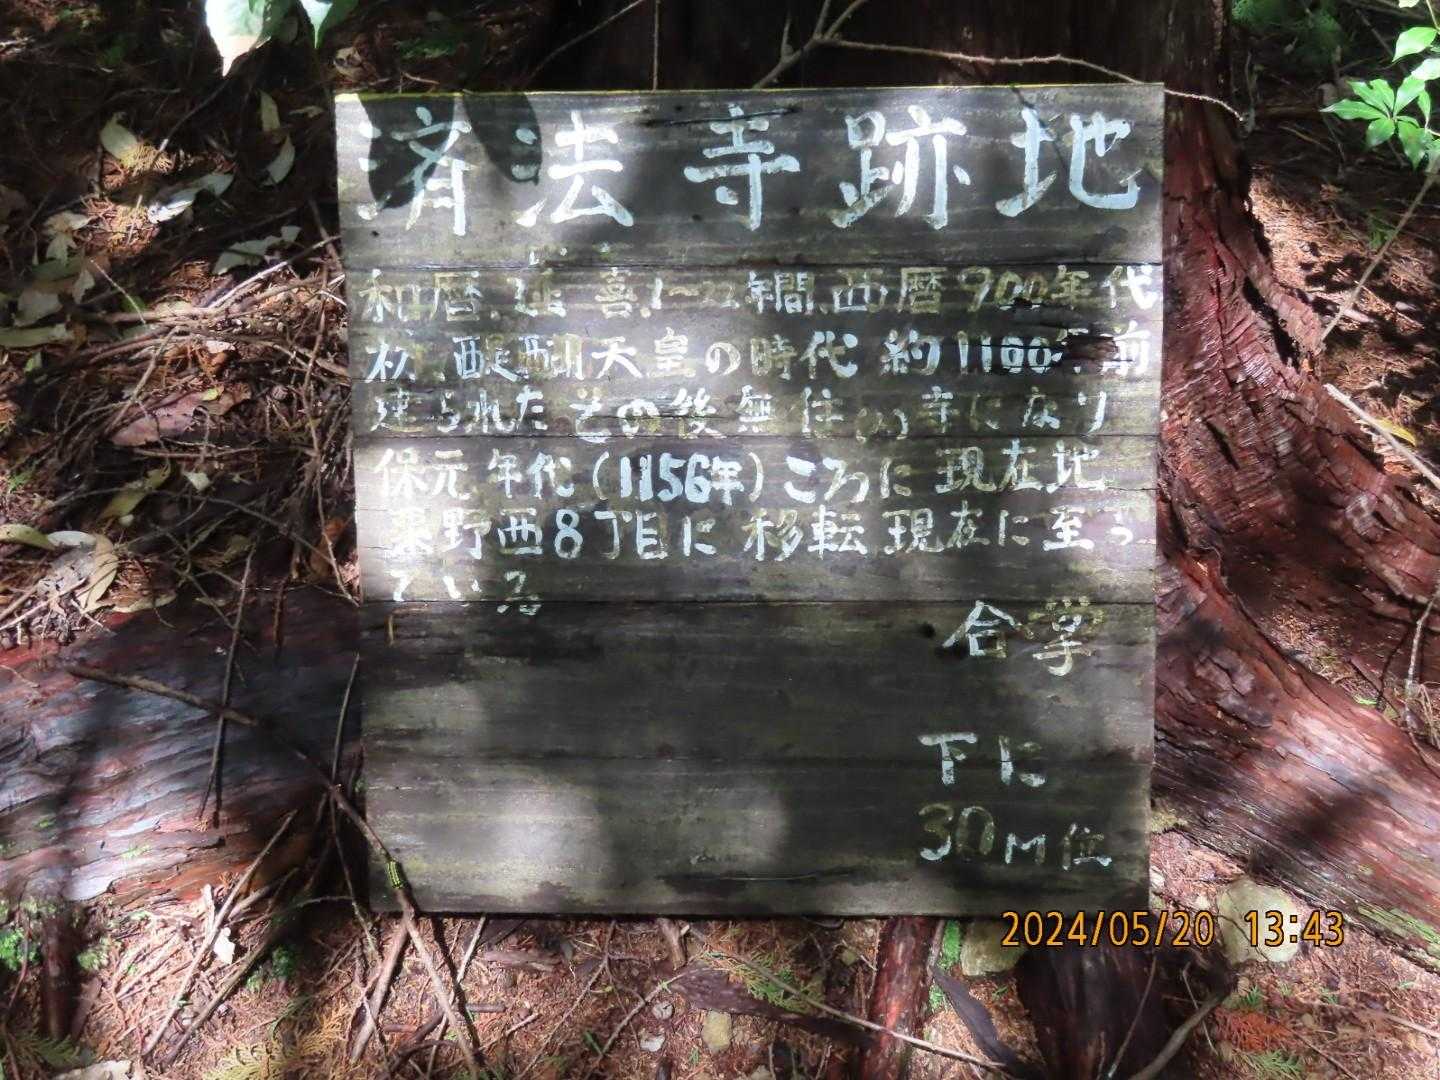 済法寺跡地
和暦、延喜、1〜22年間、西暦900年代
初、醍醐天皇の時代 約1100年前
建られた その後無住の寺になり
保元年代(1156年)ころに 現在地
粟野西8丁目に 移転 現在に至っ
ている
合掌
下に
30M位
2024/05/20 13:43